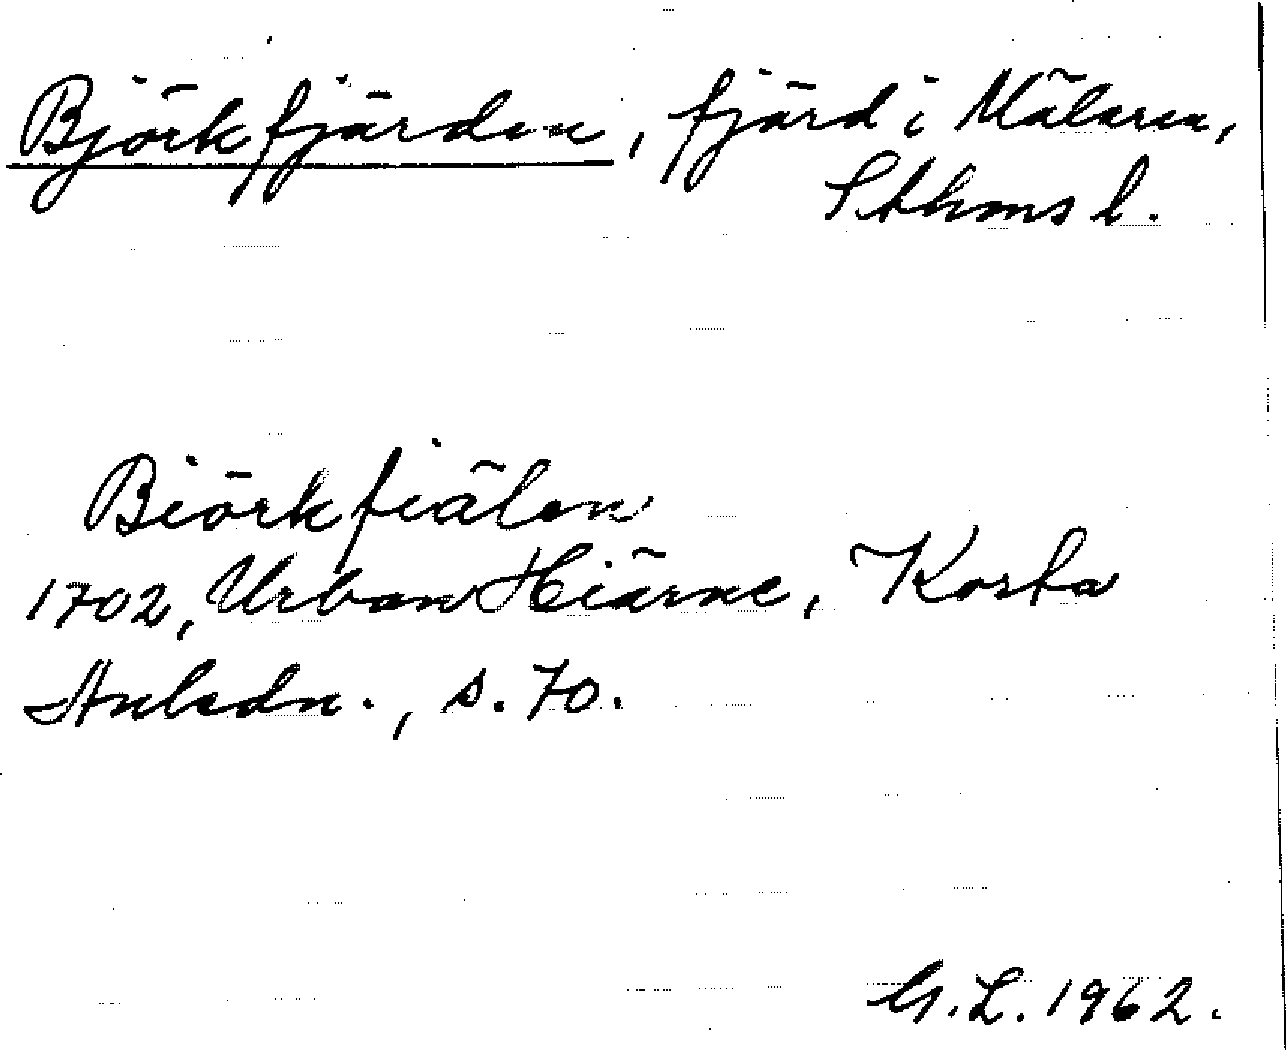 Björkfjärden, fjärd i Mälaren,
Sthms l.
Biörkfiälen
1702, Urban Hiärne, Korta
Anledn., s. 70.
G. L. 1962.